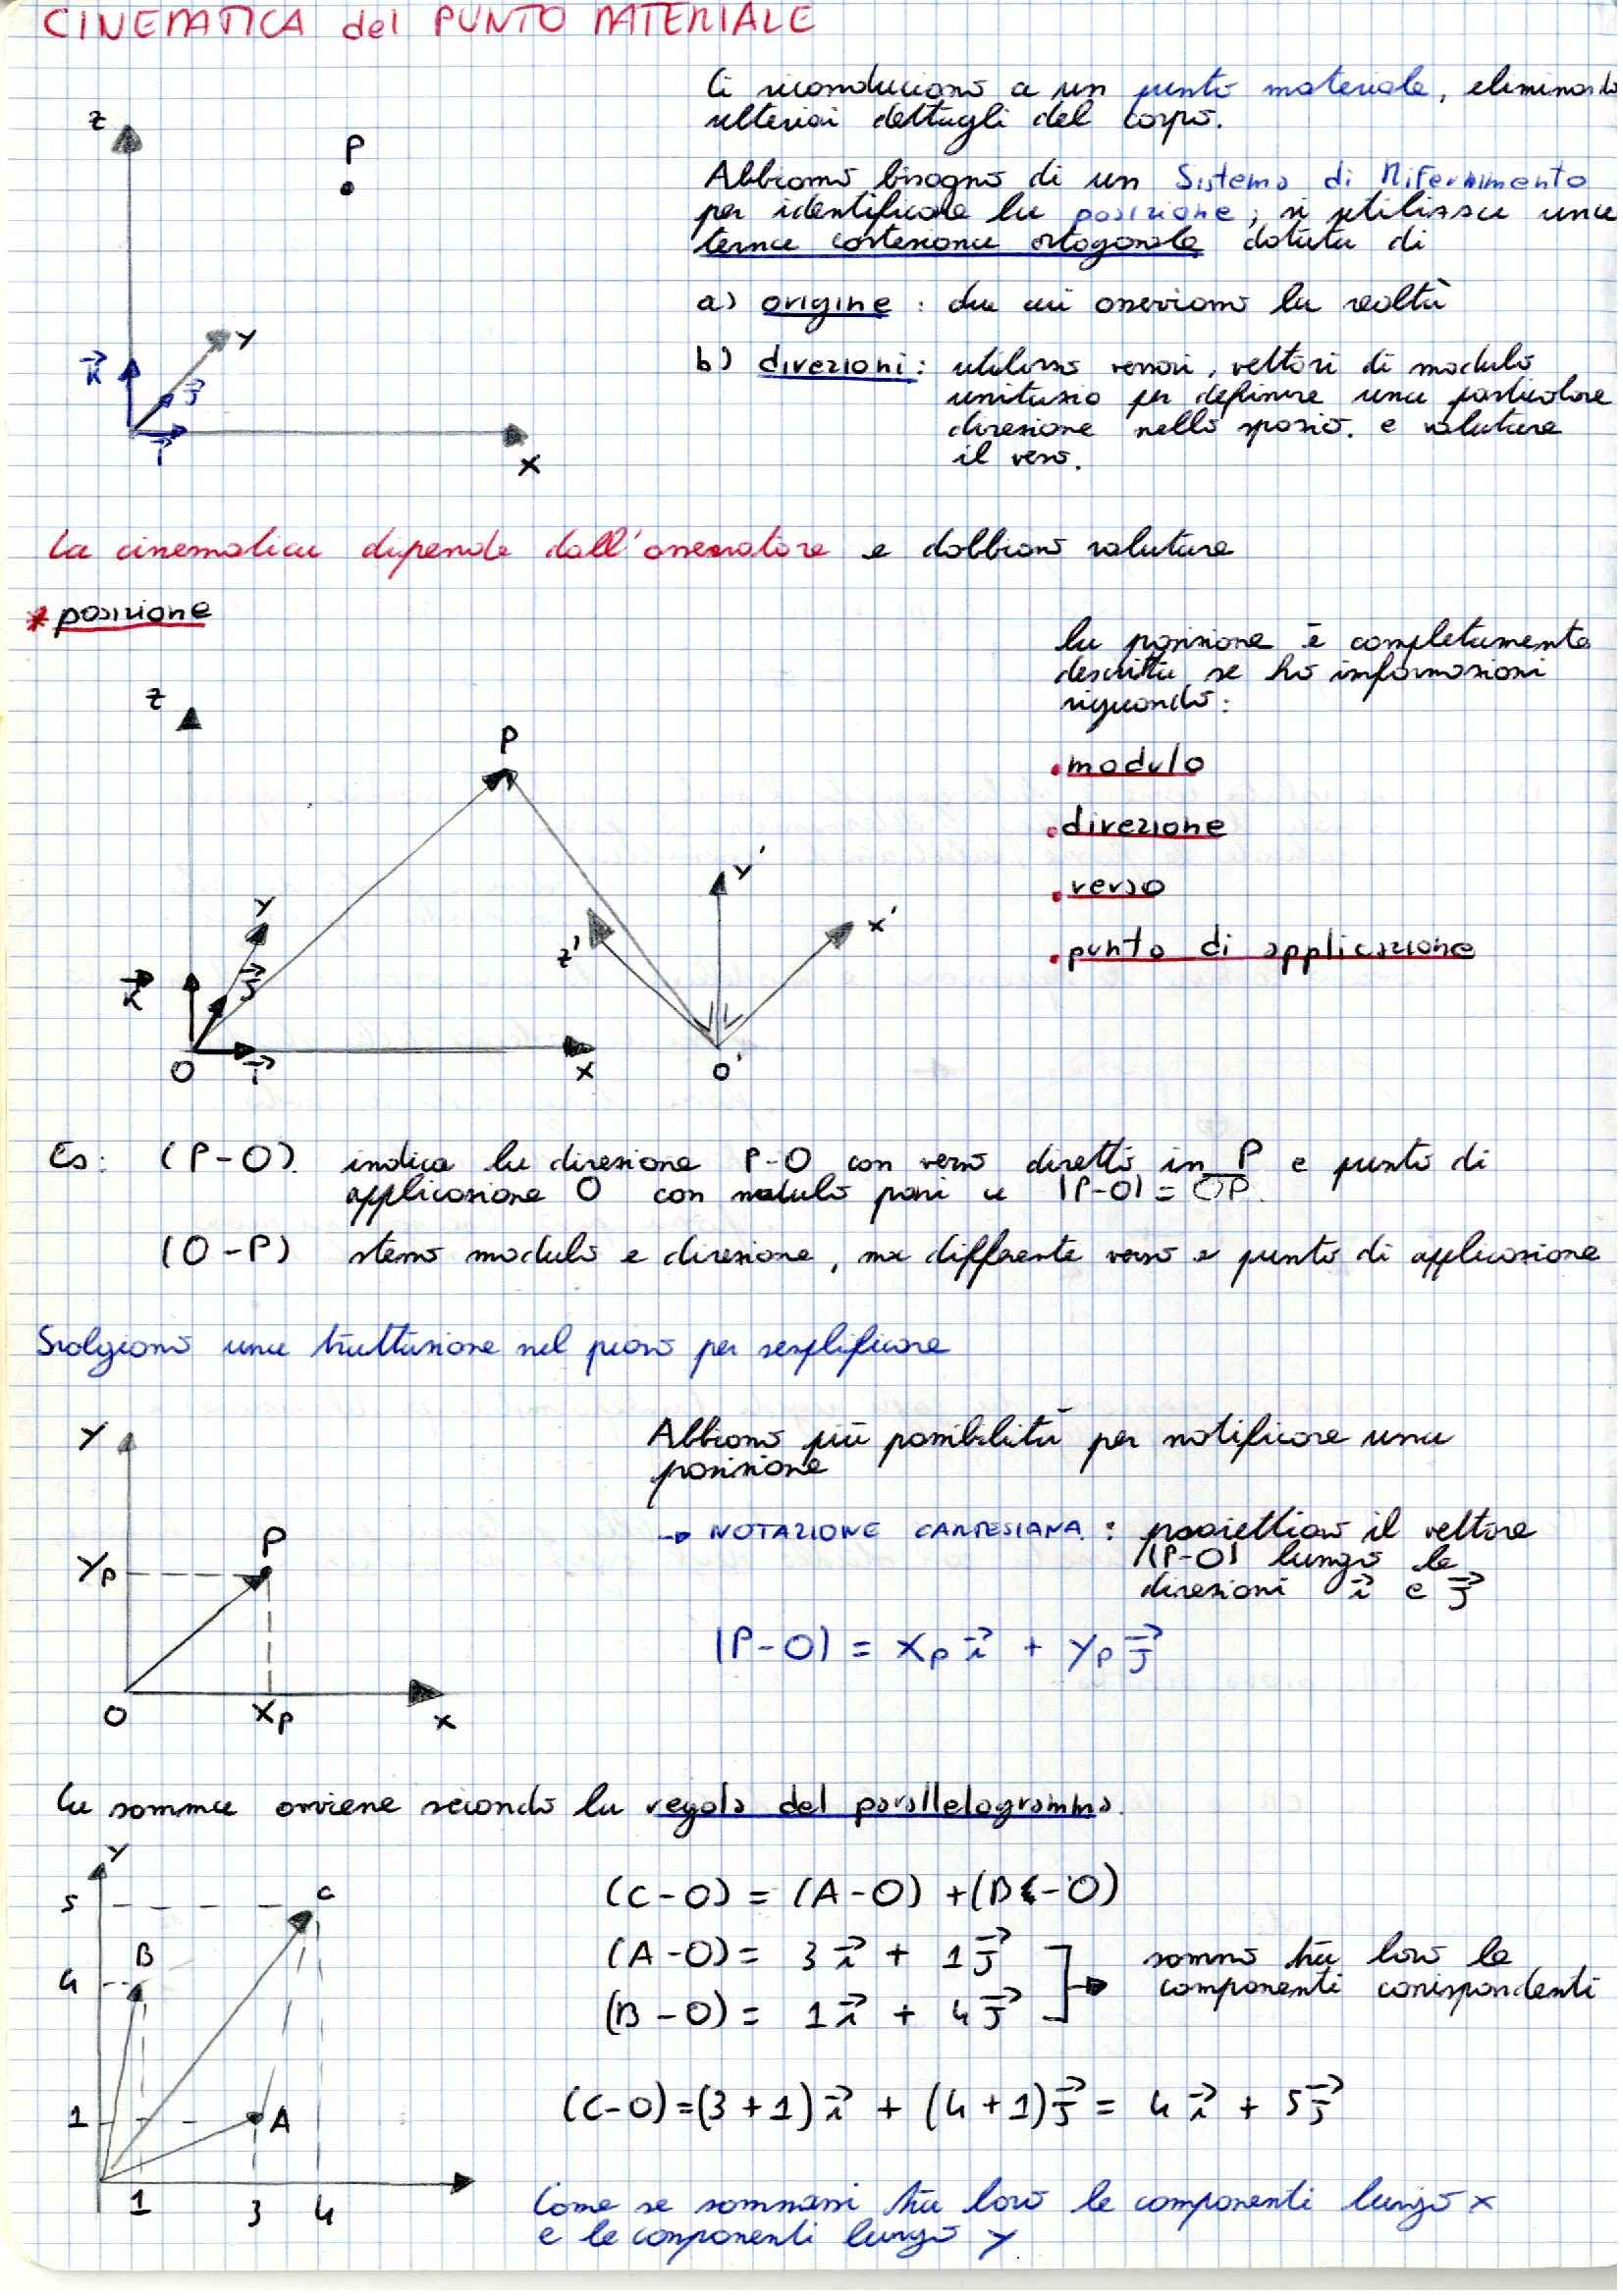 CINEMATICA del PUNTO MATERIALE
Ci riconduciamo a un punto materiale, eliminando
ulteriori dettagli del corpo.
z
P
Abbiamo bisogno di un Sistema di Riferimento
per identificare la posizione, si utilizza una
terna cartesiana ortogonale dotata di
a) origine : da cui osserviamo la realtà
y
b) direzioni: utilizzo versori, vettori di modulo
unitario per definire una particolare
direzione nello spazio. e valutare
il verso.
k⃗
j⃗
i⃗
x
La cinematica dipende dall'osservatore e dobbiamo valutare
* posizione
la posizione è completamente
descritta se ho informazioni
riguardo:
z
P
• modulo
• direzione
• verso
• punto di applicazione
y'
x'
z'
y
k⃗
j⃗
O
i⃗
x
O'
Es: (P-O). indica la direzione P-O con verso diretto in P e punto di
applicazione O con modulo pari a |P-O| = O̅P̅.
(O-P) stesso modulo e direzione, ma differente verso e punto di applicazione
Svolgiamo una trattazione nel piano per semplificare
Abbiamo più possibilità per notificare una
posizione
→ NOTAZIONE CARTESIANA : proiettiamo il vettore
(P-O) lungo le
direzioni i⃗ e j⃗
(P-O) = xp i⃗ + yp j⃗
y
P
yp
O
xp
x
La somma avviene secondo la regola del parallelogramma.
y
5
C
B
4
1
A
1
3
4
(C-O) = (A-O) + (B-O)
(A-O) = 3 i⃗ + 1 j⃗
(B-O) = 1 i⃗ + 4 j⃗
sommo tra loro le
componenti corrispondenti
(C-O) = (3+1) i⃗ + (4+1) j⃗ = 4 i⃗ + 5 j⃗
Come se sommassi tra loro le componenti lungo x
e le componenti lungo y.